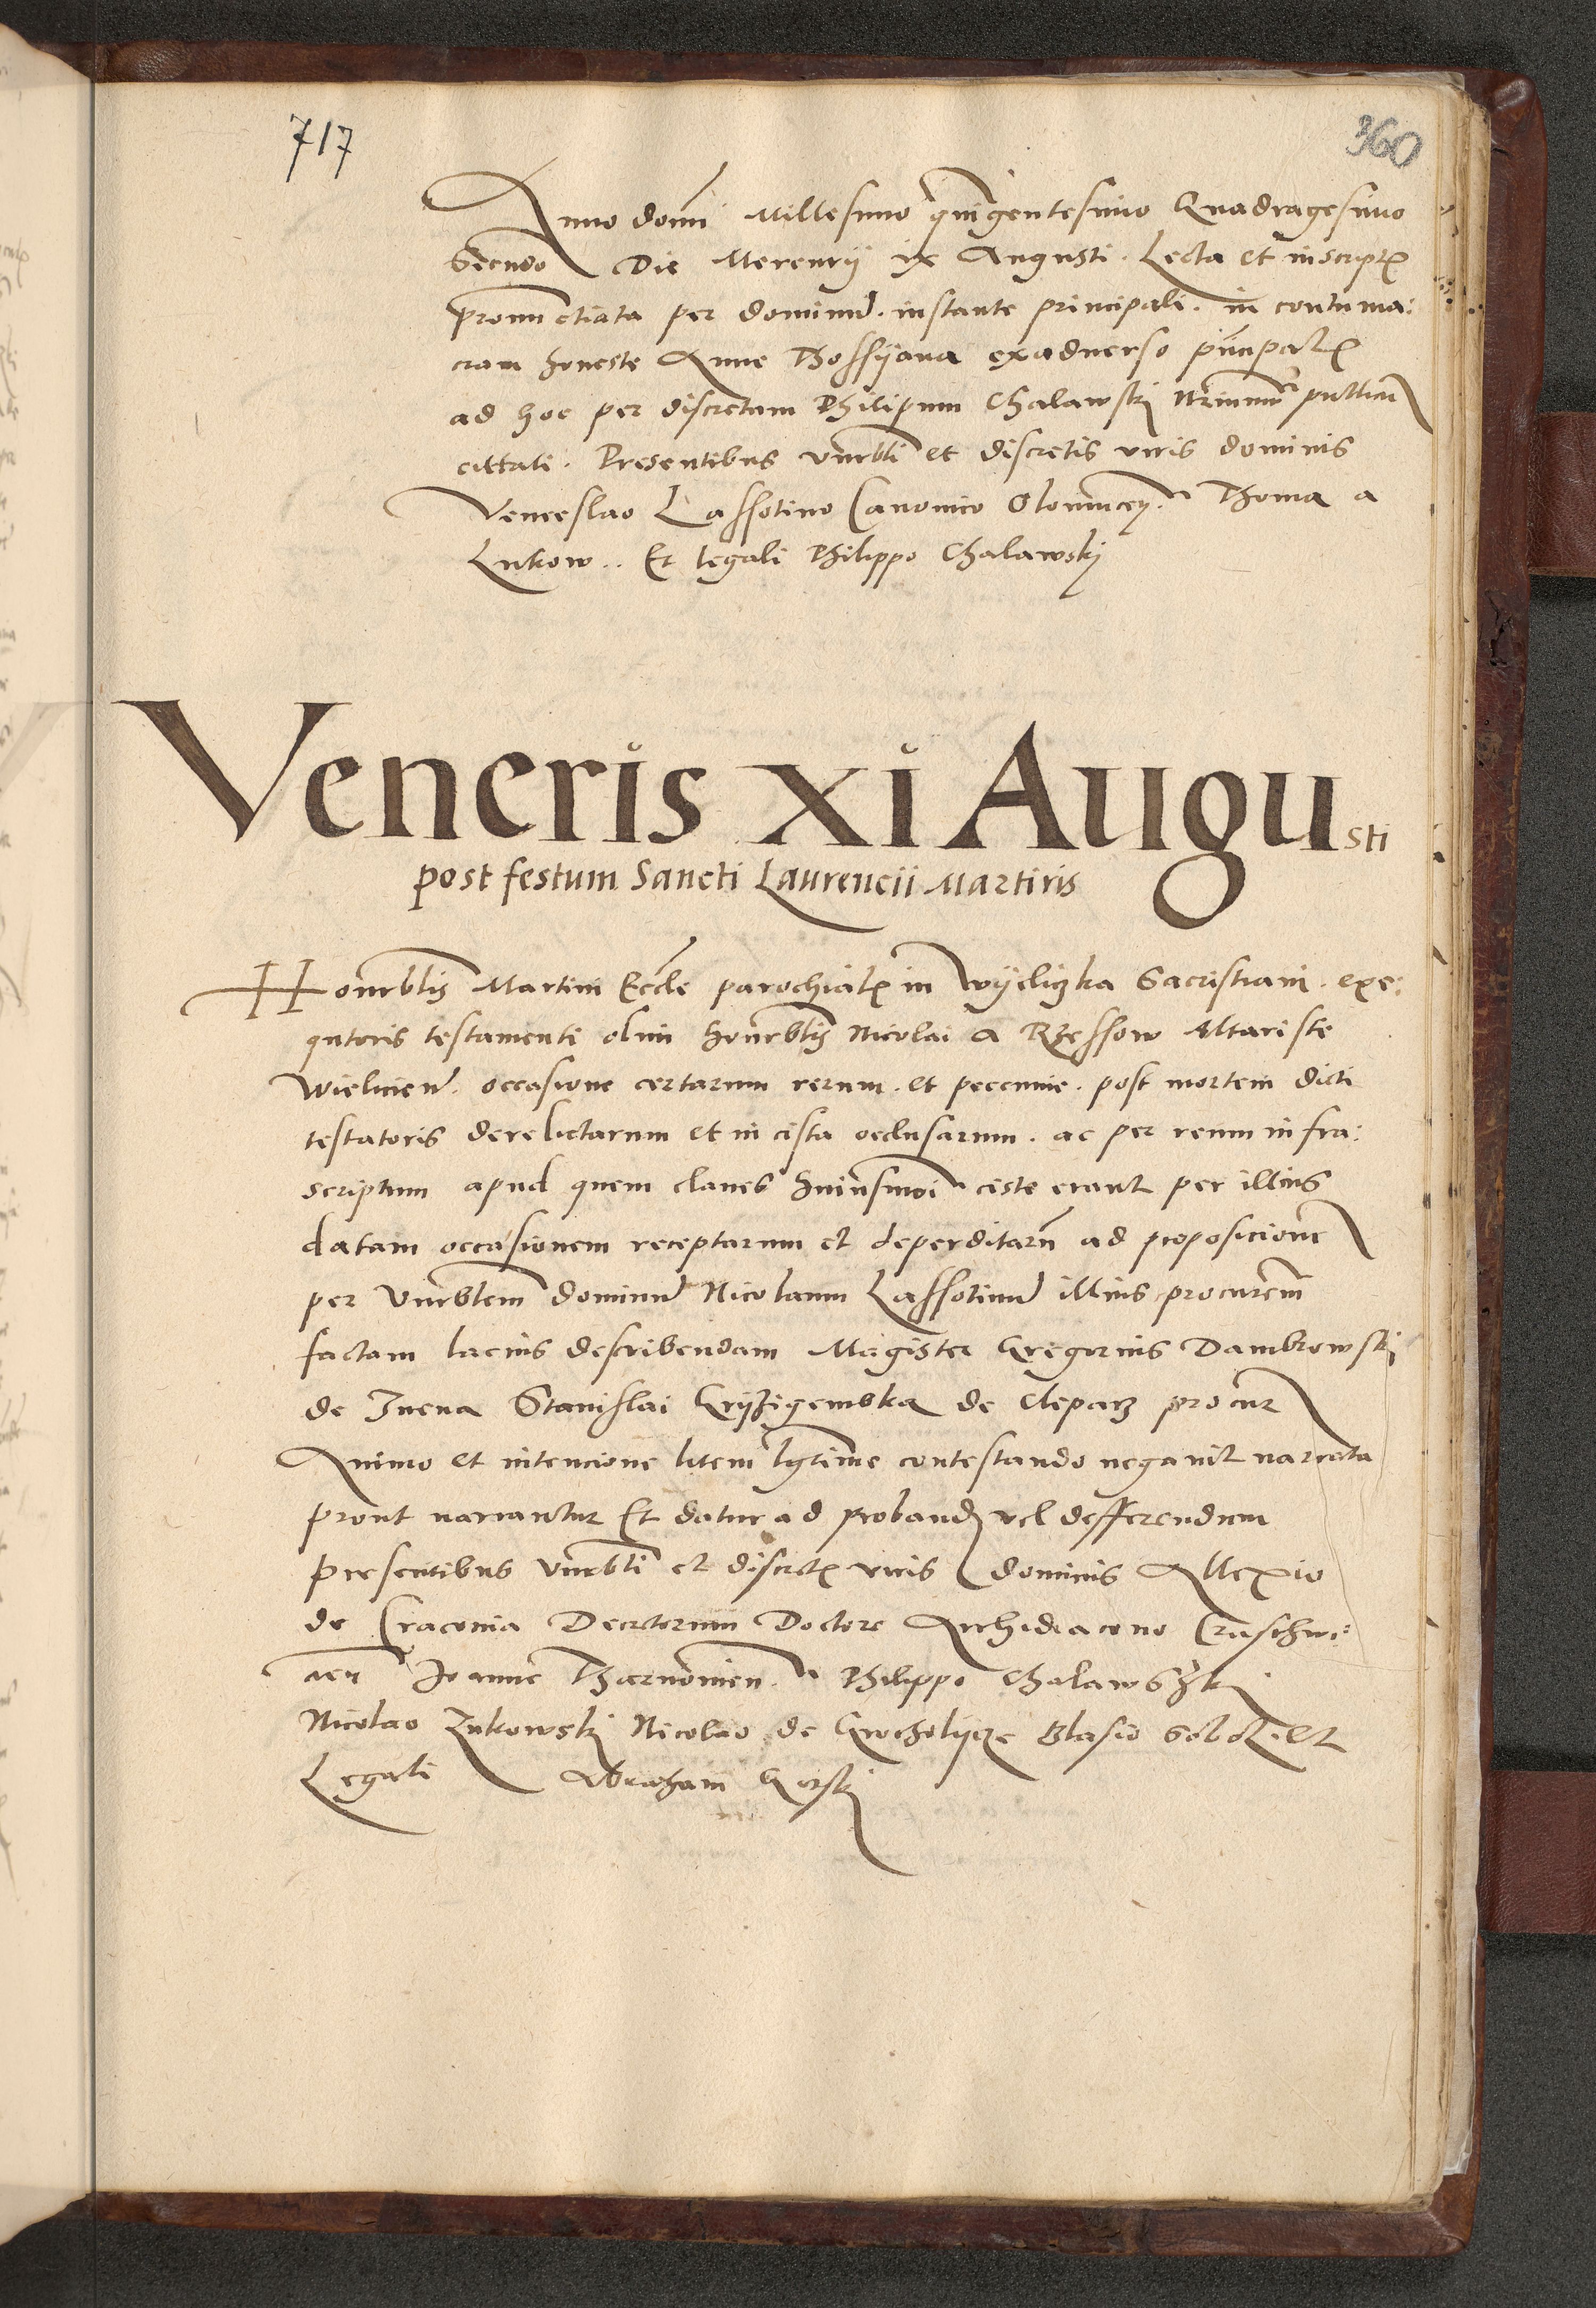 717
360
Anno domi Millesimo quingentesimo Quadragesimo
Secundo Die Mercurij ix Augusti. Lecta et in script
pronunctiata per dominum. instante principali. in contuma:
ciam honeste Anne Thossijana exadverso principal
ad hoc per discretum Philipum Chalawskj publicu
cittati. Presentibus vnrbli et discretis viris dominis
Venceslao Lassotino Canonico Olomucen. Thoma a
Lukow.. Et legali Philippo Chalawskj
Veneris xi Augusti
post festum Sancti Laurencii Martiris
Honrblis Martini Eccle parochialis in Wyeliczka Sacristiani. exe:
qutoris testamenti olim honrblis Nicolai a Rzessow Altariste
Wielicien. occasione certarum rerum. et peccunie. post mortem dicti
testatoris derelictarum et in cista occlusarum. ac per reum infra:
scriptum apud quem claves huiusmoi ciste erant per illius
datam occasionem receptarum et deperditaru ad proposicione
per Vnrblem dominum Nicolaum Lassotinum illius procurem
factam lacius describendam Magister Gregorius Dambrowskj
de Juena Stanislai Grzizigembka de Cleparz procur
Animo et intencione litem lgtime contestando negavit narrata
prout narrantur Et datur ad proband vel defferendum
presentibus vnrbli et discret viris dominis Allexio
de Cracovia Decretorum Doctore Archidiacono Cruschwi:
cien Joanne Tharnovien. Philippo Chalawskj
Nicolao Zukowskj Nicolao de Grocholycze Blasio Et
Legali Abraham Gorskj